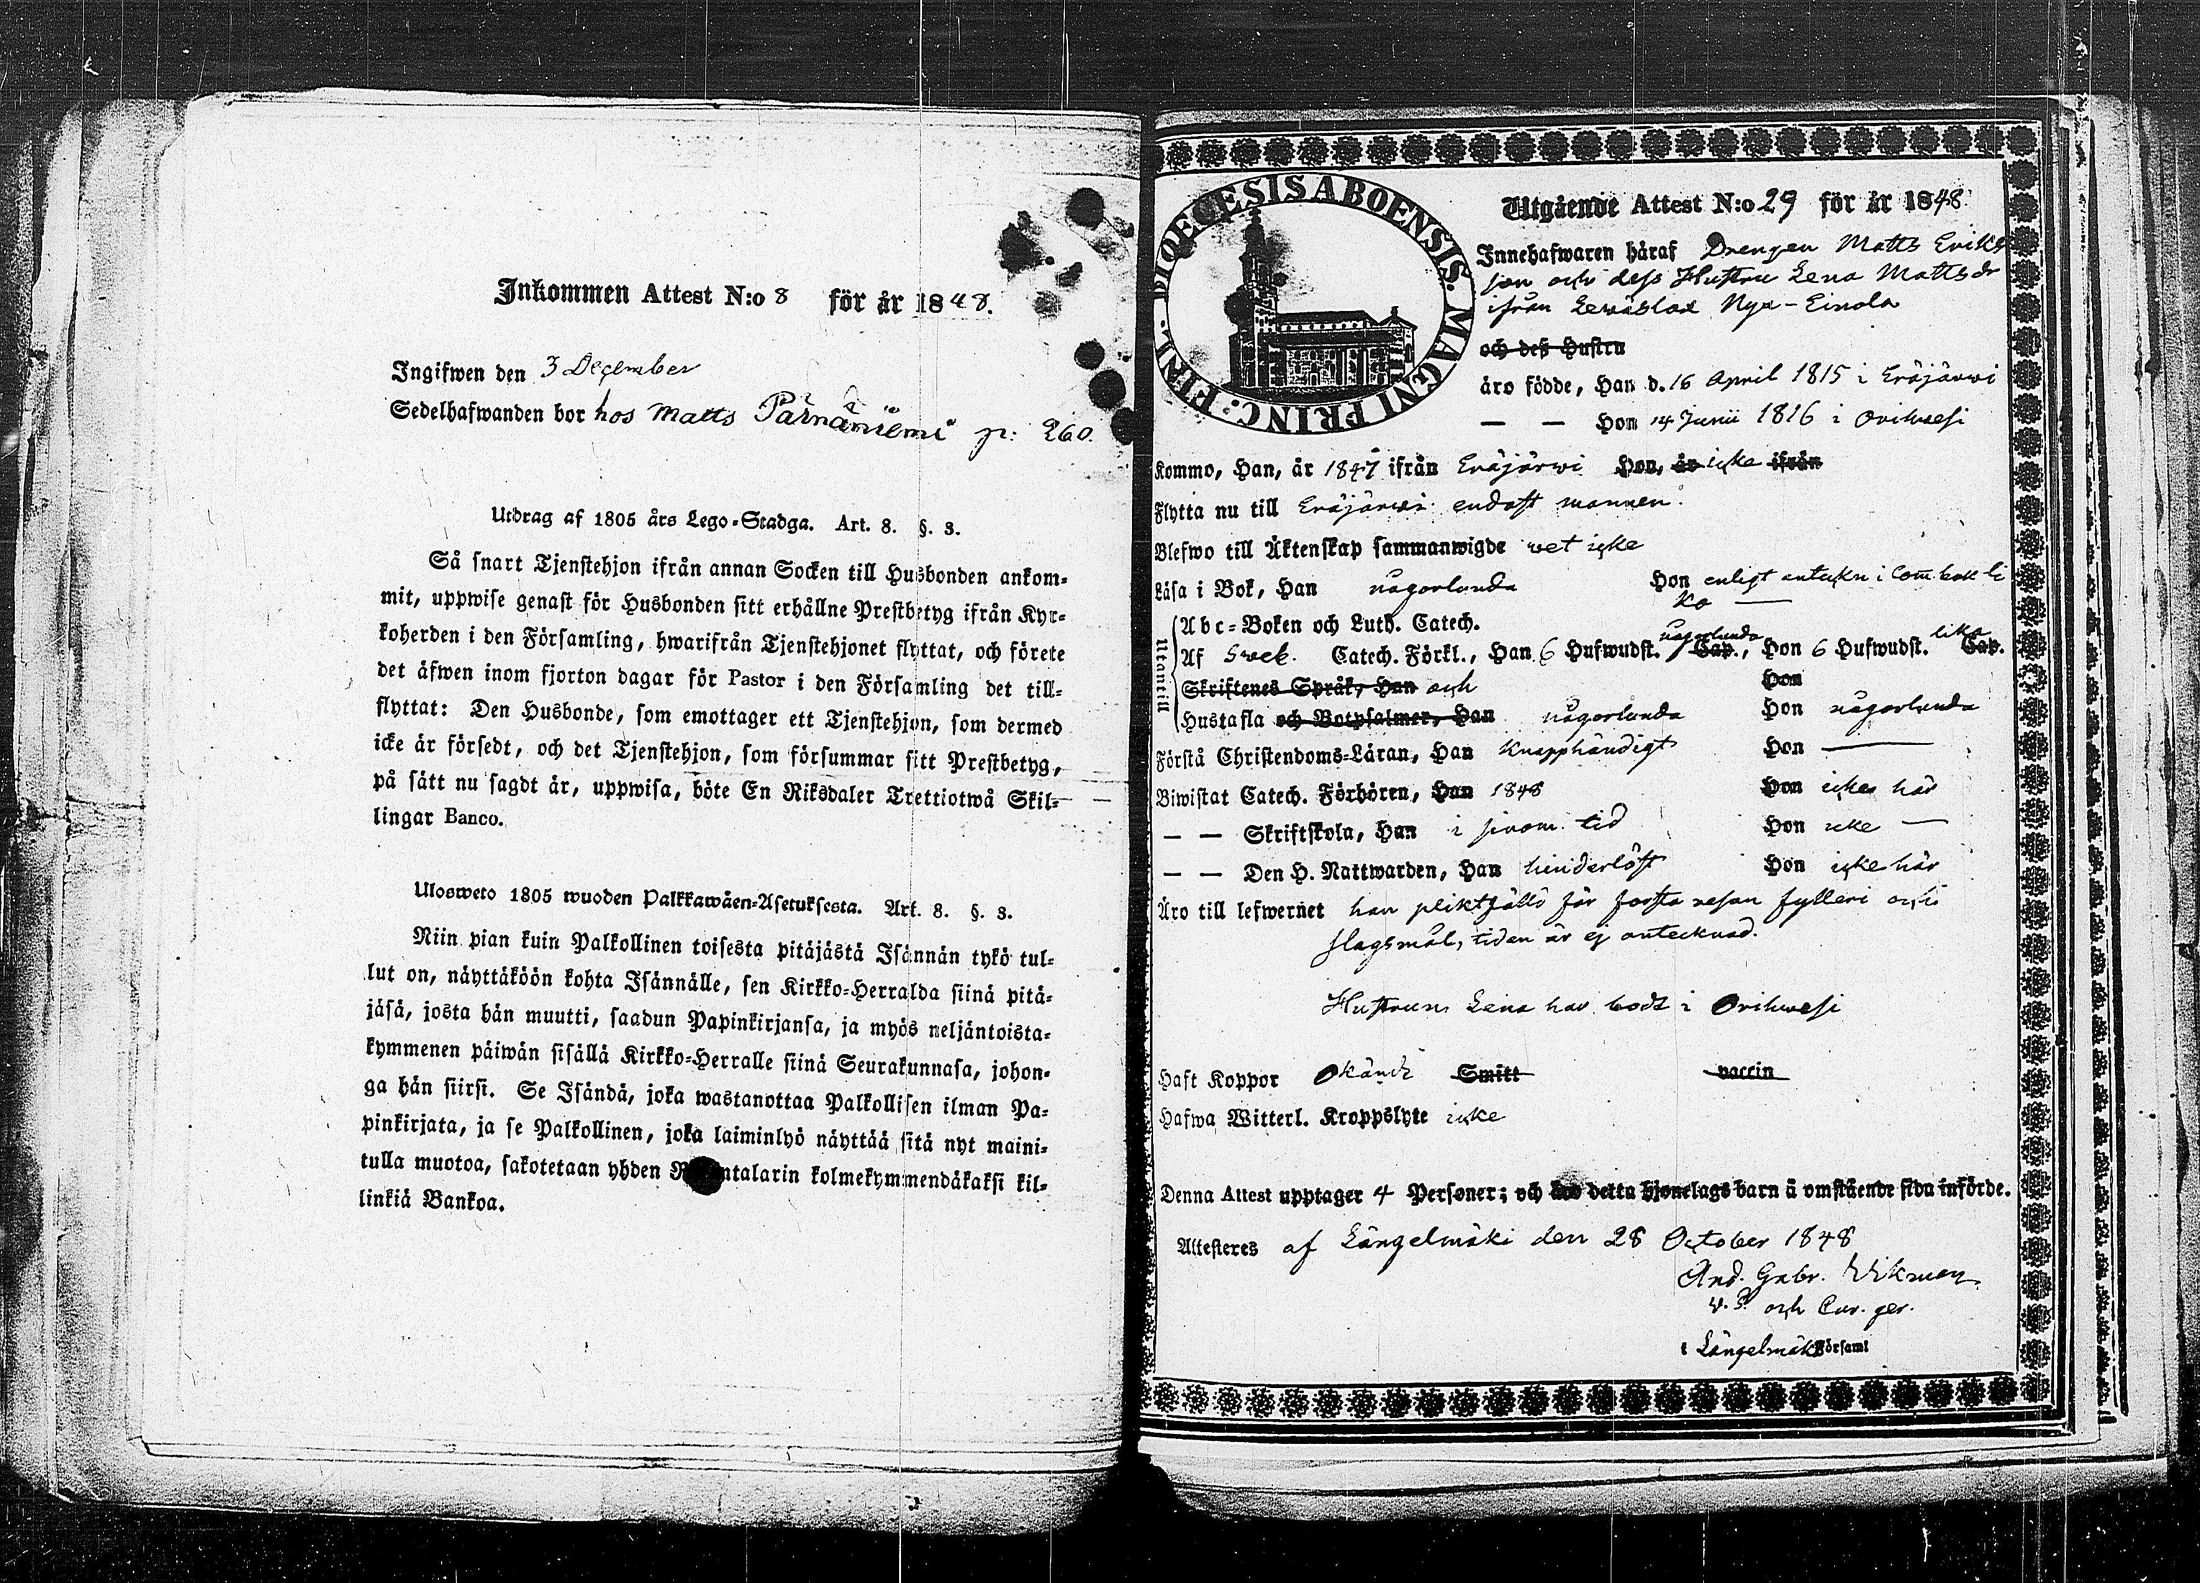 Inkommen Attest N:o 8 för år 1848.
Ingifwen den 3 December
Sedelhafwanden bor hos Matts Pärnäniemi p: 260.
Utdrag af 1805 års Lego-Stadga. Art. 8. §. 3.
Så snart Tjenstehjon ifrån annan Socken till Husbonden ankom-
mit, uppwise genast för Husbonden sitt erhållne Prestbetyg ifrån Kyr-
koherden i den Församling, hwarifrån Tjenstehjonet flyttat, och förete
det äfwen inom fjorton dagar för Pastor i den Församling det till-
flyttat: Den Husbonde, som emottager ett Tjenstehjon, som dermed
icke är försedt, och det Tjenstehjon, som försummar sitt Prestbetyg,
på sätt nu sagdt är, uppwisa, böte En Riksdaler Trettiotwå Skil-
lingar Banco.
Ulosweto 1805 wuoden Palkkawäen-Asetuksesta. Art. 8. §. 3.
Niin pian kuin Palkollinen toisesta pitäjästä Isännän tykö tul-
lut on, näyttäköön kohta Isännälle, sen Kirkko-Herralda siinä pitä-
jäsä, josta hän muutti, saadun Papinkirjansa, ja myös neljäntoista-
kymmenen päiwän sisällä Kirkko-Herralle siinä Seurakunnasa, johon-
ga hän siirsi. Se Isändä, joka wastanottaa Palkollisen ilman Pa-
pinkirjata, ja se Palkollinen, joka laiminlyö näyttää sitä nyt maini-
tulla muotoa, sakotetaan yhden kolmekymmendäkaksi kil-
linkiä Bankoa.
DIOECESIS ABOENSIS. MAGNI PRINC: FINL.
Utgående Attest N:o 29 för år 1848
Innehafwaren häraf Drengen Matts Eriks
son och dess Hustru Lena Mattsdr
ifrån Nya-Einola
och deß Hustru
äro födde, Han d. 16 April 1815 i Eräjärwi
— — Hon 14 Junii 1816 i Orihwesi
Kommo, Han, år 1847 ifrån Eräjärwi Hon, år icke ifrån
Flytta nu till Eräjärwi endast mannen.
Blefwo till Äktenskap sammanwigde wet icke
Läsa i Bok, Han någorlunda Hon enligt anteckn i Com. bok li
ka —
Utantill
Abc-Boken och Luth. Catech.
Af Sveb. Catech. Förkl., Han 6 Hufwudst. någorlunda Cap., Hon 6 Hufwudst. lika Cap.
Skriftenes Språk, Han och Hon
Hustafla och Botpsalmer, Han någorlunda Hon någorlunda
Förstå Christendoms-Läran, Han knapphändigt Hon —
Biwistat Catech. Förhören, Han 1848 Hon icke här
— — Skriftskola, Han i sinom tid Hon icke —
— — Den H. Nattwarden, Han hinderlöst Hon icke här
Äro till lefwernet han pliktfälld för första resan fylleri och
slagsmål, tiden är ej antecknad.
Hustrun Lena har bodt i Orihwesi
Haft Koppor Okändt Smitt vaccin
Hafwa Witterl. Kroppslyte icke
Denna Attest upptager 4 Personer; och äro detta hjonelags barn å omstående sida införde.
Attesteres af Längelmäki den 28 October 1848
And. Gabr. Wikman
v. P. och Cur. ger.
i Längelmäki Församl